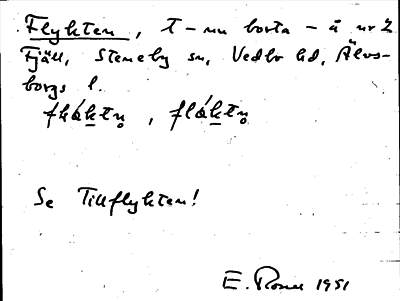 Flykten, t-nu borta - å nr 2
Fjäll, Steneby sn, Vedbo hd, Älvs-
borgs l.
flȧ́ktn̥, flȧ́ktn̥
Se Tillflykten!
E. 1951